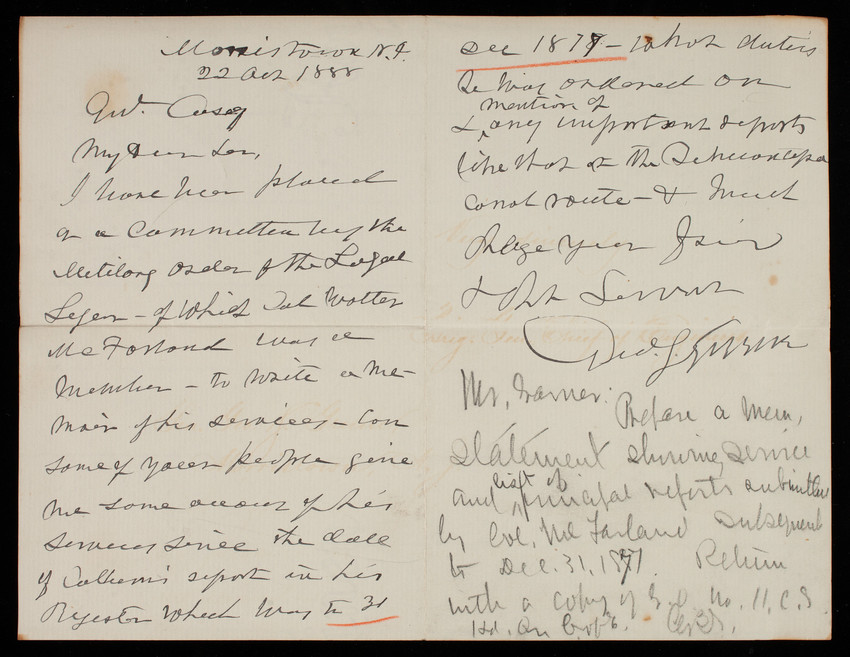 Morristown N.J.
22 Oct 1888
Genl. Casey
My dear Sir,
I have been placed
on a Committee by the
Military order of the Loyal
Legion – of which Col Walter
McFarland was a
Member – to write a me-
moir of his services – Can
some of your people give
me some account of his
services since the date
of Cullum's report in his
Register which was to 31
Dec 1877 – what duties
he was ordered on
mention of
& any important reports
like that on the Tehuantepec
canal route – & much
oblige your
& Obt Servant
Geo.
Mr. Warner:
Prepare a mem.
statement showing service
and list of principal reports submitted
by Col. McFarland subsequent
to Dec. 31, 1877. Return
with a copy of G.O. No. 11, C.S.
Hd. Qrs Corps